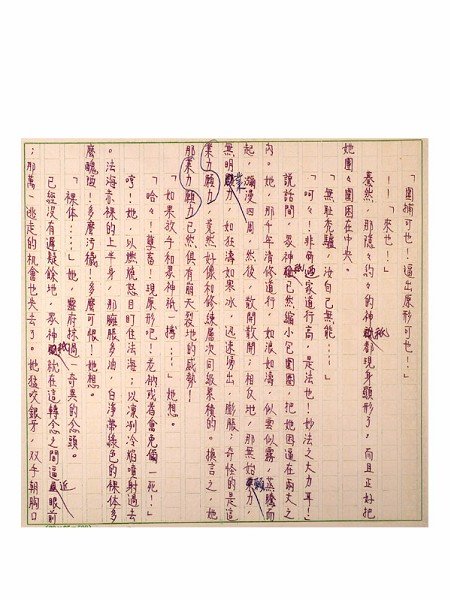 「圍捕可也!逼出原形可也!!」
「!來也!」
驀然,那隱々約々的神祇都現身顯形了,而且正好把
她團々圍困在中央。
「無恥禿驢,汝自己無能⋯⋯」
「呵々!非
家道行高,是法也!妙法之大力耳!」
說話間,眾神祇已然縮小包圍圈,把她困逼在兩丈之
內。她,那千年清修道行,如浪如濤,似雲似霧,蒸騰而
起,瀰漫四周,然後,散開散開;相反地,那無始業力
無明業力,如狂濤如果冰,迅速湧出,膨脹;奇怪的是這
業力願力,竟然好像和修練層次同級累積的。換言之,她
那業力願力已然俱有崩天裂地的威勢!
「如果放手和眾神祇一搏⋯⋯」她想。
「哈々!孽畜!現原形吧!老衲或者會免儞一死!」
哼!她,以燃燒怒目盯住法海;以凜冽冷焰噴射過去
。法海赤裸的上半身,那臃腫多油,白淨帶綠色的裸体多
麼醜惡!多麼污穢!多麼可恨!她想。
「裸体⋯⋯」她,靈府抹過一奇異的念頭。
已經沒有遲疑餘地,眾神祇就在這轉念之間逼近眼前
;那萬一逃走的機會也失去了。她猛咬銀牙,双手朝胸口